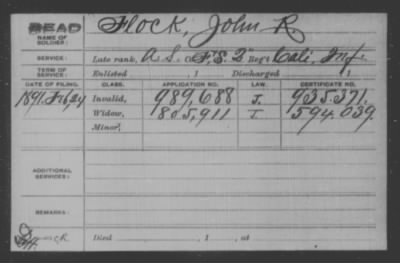 DEAD Flock, John R
NAME OF SOLDIER:
SERVICE: Late rank, A.S. F.S. 2 Reg't Cali, Inf
TERM OF SERVICE: Enlisted , 1 Discharged , 1
DATE OF FILING. CLASS. APPLICATION NO. LAW. CERTIFICATE NO.
1891 Invalid, 989,688 J. 935.371.
Widow, 805,911 I. 594.039.
Minor,
ADDITIONAL SERVICES:
REMARKS:
Died , 1 , at